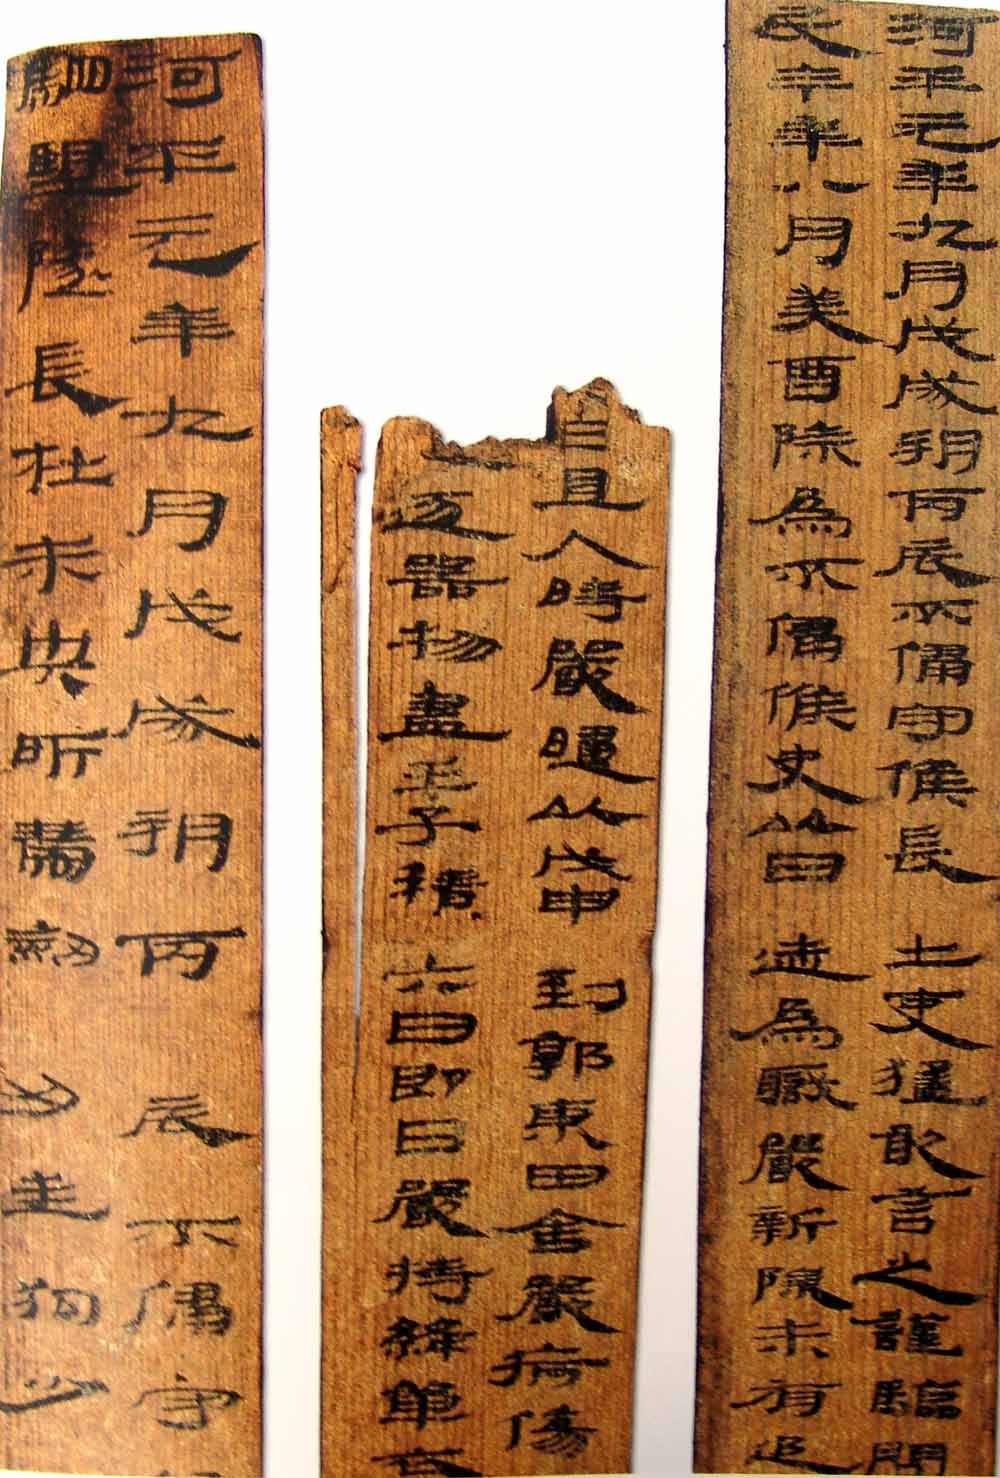 河平元年九月戊戌朔丙辰不侵守候長士吏猛敢言之謹驗問
年八月癸酉除為不侵候史以日迹為職嚴新除未有追
日且入時嚴歸以戊申到郭東田舍嚴病傷
逐器物盡壬子積六日即日嚴持絳單衣
河平元年九月戊戌朔丙辰不侵守
駟望隧長杜未央所帶劍刃生狗少